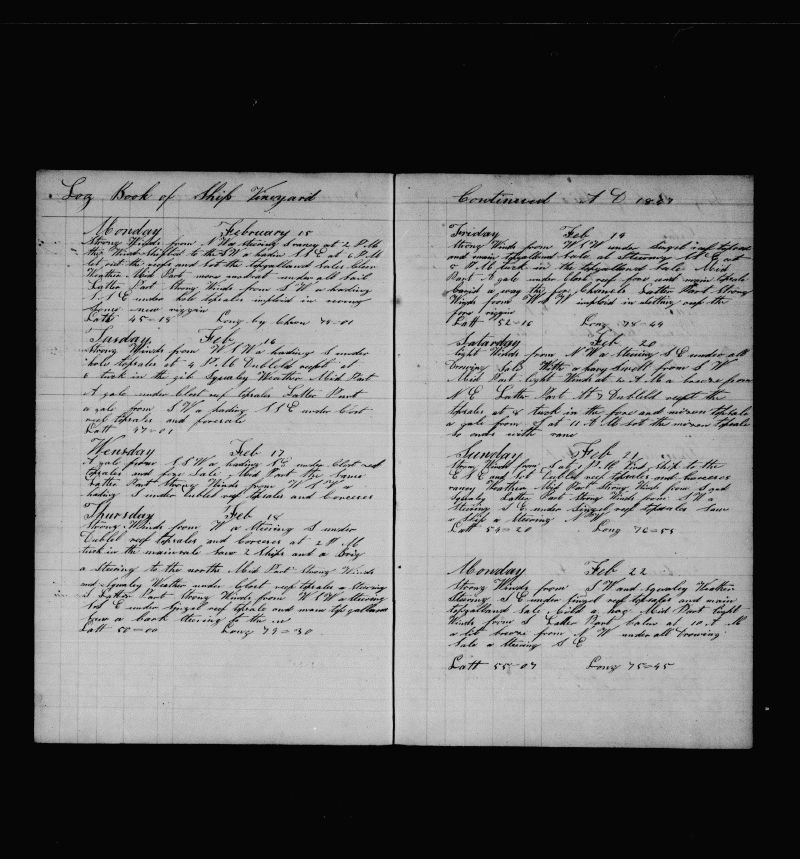 Log Book of Ship Vineyard
Monday February 15
Strong Winds from N W a steering S at 2 P M
the Wind Shifted to the S W a hadin S S E at 6 P M
let out the reefs and Sot the topgalland Sales Clen
Weather Mid Part more modrat under all Sail
Latter Part Strong Winds from S W a hading
S S E under hole topsales imploid in
some new riggin
Latt 45=18 Long by Chron 78=01
Tusday Feb 16
Strong Winds from W S W a hading S under
hole topsales at 4 P M Dubbled reeft at
tuck in the gib Squaley Weather Mid Part
A gale under Clost reef topsales Latter Part
a gale from S W a hading S S E under Clost
reef topsales and foresale
Latt 47=01
Wensday Feb 17
A gale from S S W a hading S E under Clost reef
topsales and fore Sale Mid Part the Same
Latter Part Strong Winds from W S W a
hading S under Dubled reef topsales and Coercees
Thursday Feb 18
Strong Winds from W a Steering S under
Dubled reef topsales and Coercees at 2 P M
tuck in the mainsale Saw 2 Ships and a Brig
a Stering to the north Mid Part Strong Winds
and Squaley Weather under Clost reef topsales a Stering
S Latter Part Strong Winds from W S W a Stering
S E under Singel reef topsale and main topgallansale
Saw a bark Stering to the
Latt 50=00 Long 79=30
Continued A D 1857
Friday Feb 19
Strong Winds from W S W under Singel reef topsales
and main topgalland Sale at Steering S E at
P M tuck in the topgalland Sale Mid
Part A gale under Clost reef fore and main topsale
a way the Latter Part Strong
Winds from W S W imploid in Setting up the
fore riggin
Latt 52=16 Long 78=49
Satarday Feb 20
light Winds from N W a Stering S E under all
Drawing Sale With a havy Swell from S W
Mid Part light Winds at A M a breeze from
N E Latter Part Dubbled reeft the
topsales at 8 tuck in the fore and mizzen topsale
a gale from at 11 A M sot the mizen topsale
So ends with rane
Sunday Feb 21
Strong Winds from S at 1 P M Ship to the
E S E and Sot Dubled reef topsales and Coercees
raney Weather Mid Part Strong Winds from S and
Squaley Latter Part Strong Winds from S W a
Stering S E under Singel reef topsales Saw
a Ship a Stering N W
Latt 54=20 Long 76=58
Monday Feb 22
Strong Winds from S W and Squaley Weather
Stering S E under Singel reef topsales and main
topgalland Sale kild a hog Mid Part light
Winds from S Latter Part Calm at 10 A M
a lite breeze from N W under all Drawing
Sale a Stering S E
Latt 55=07 Long 75=45